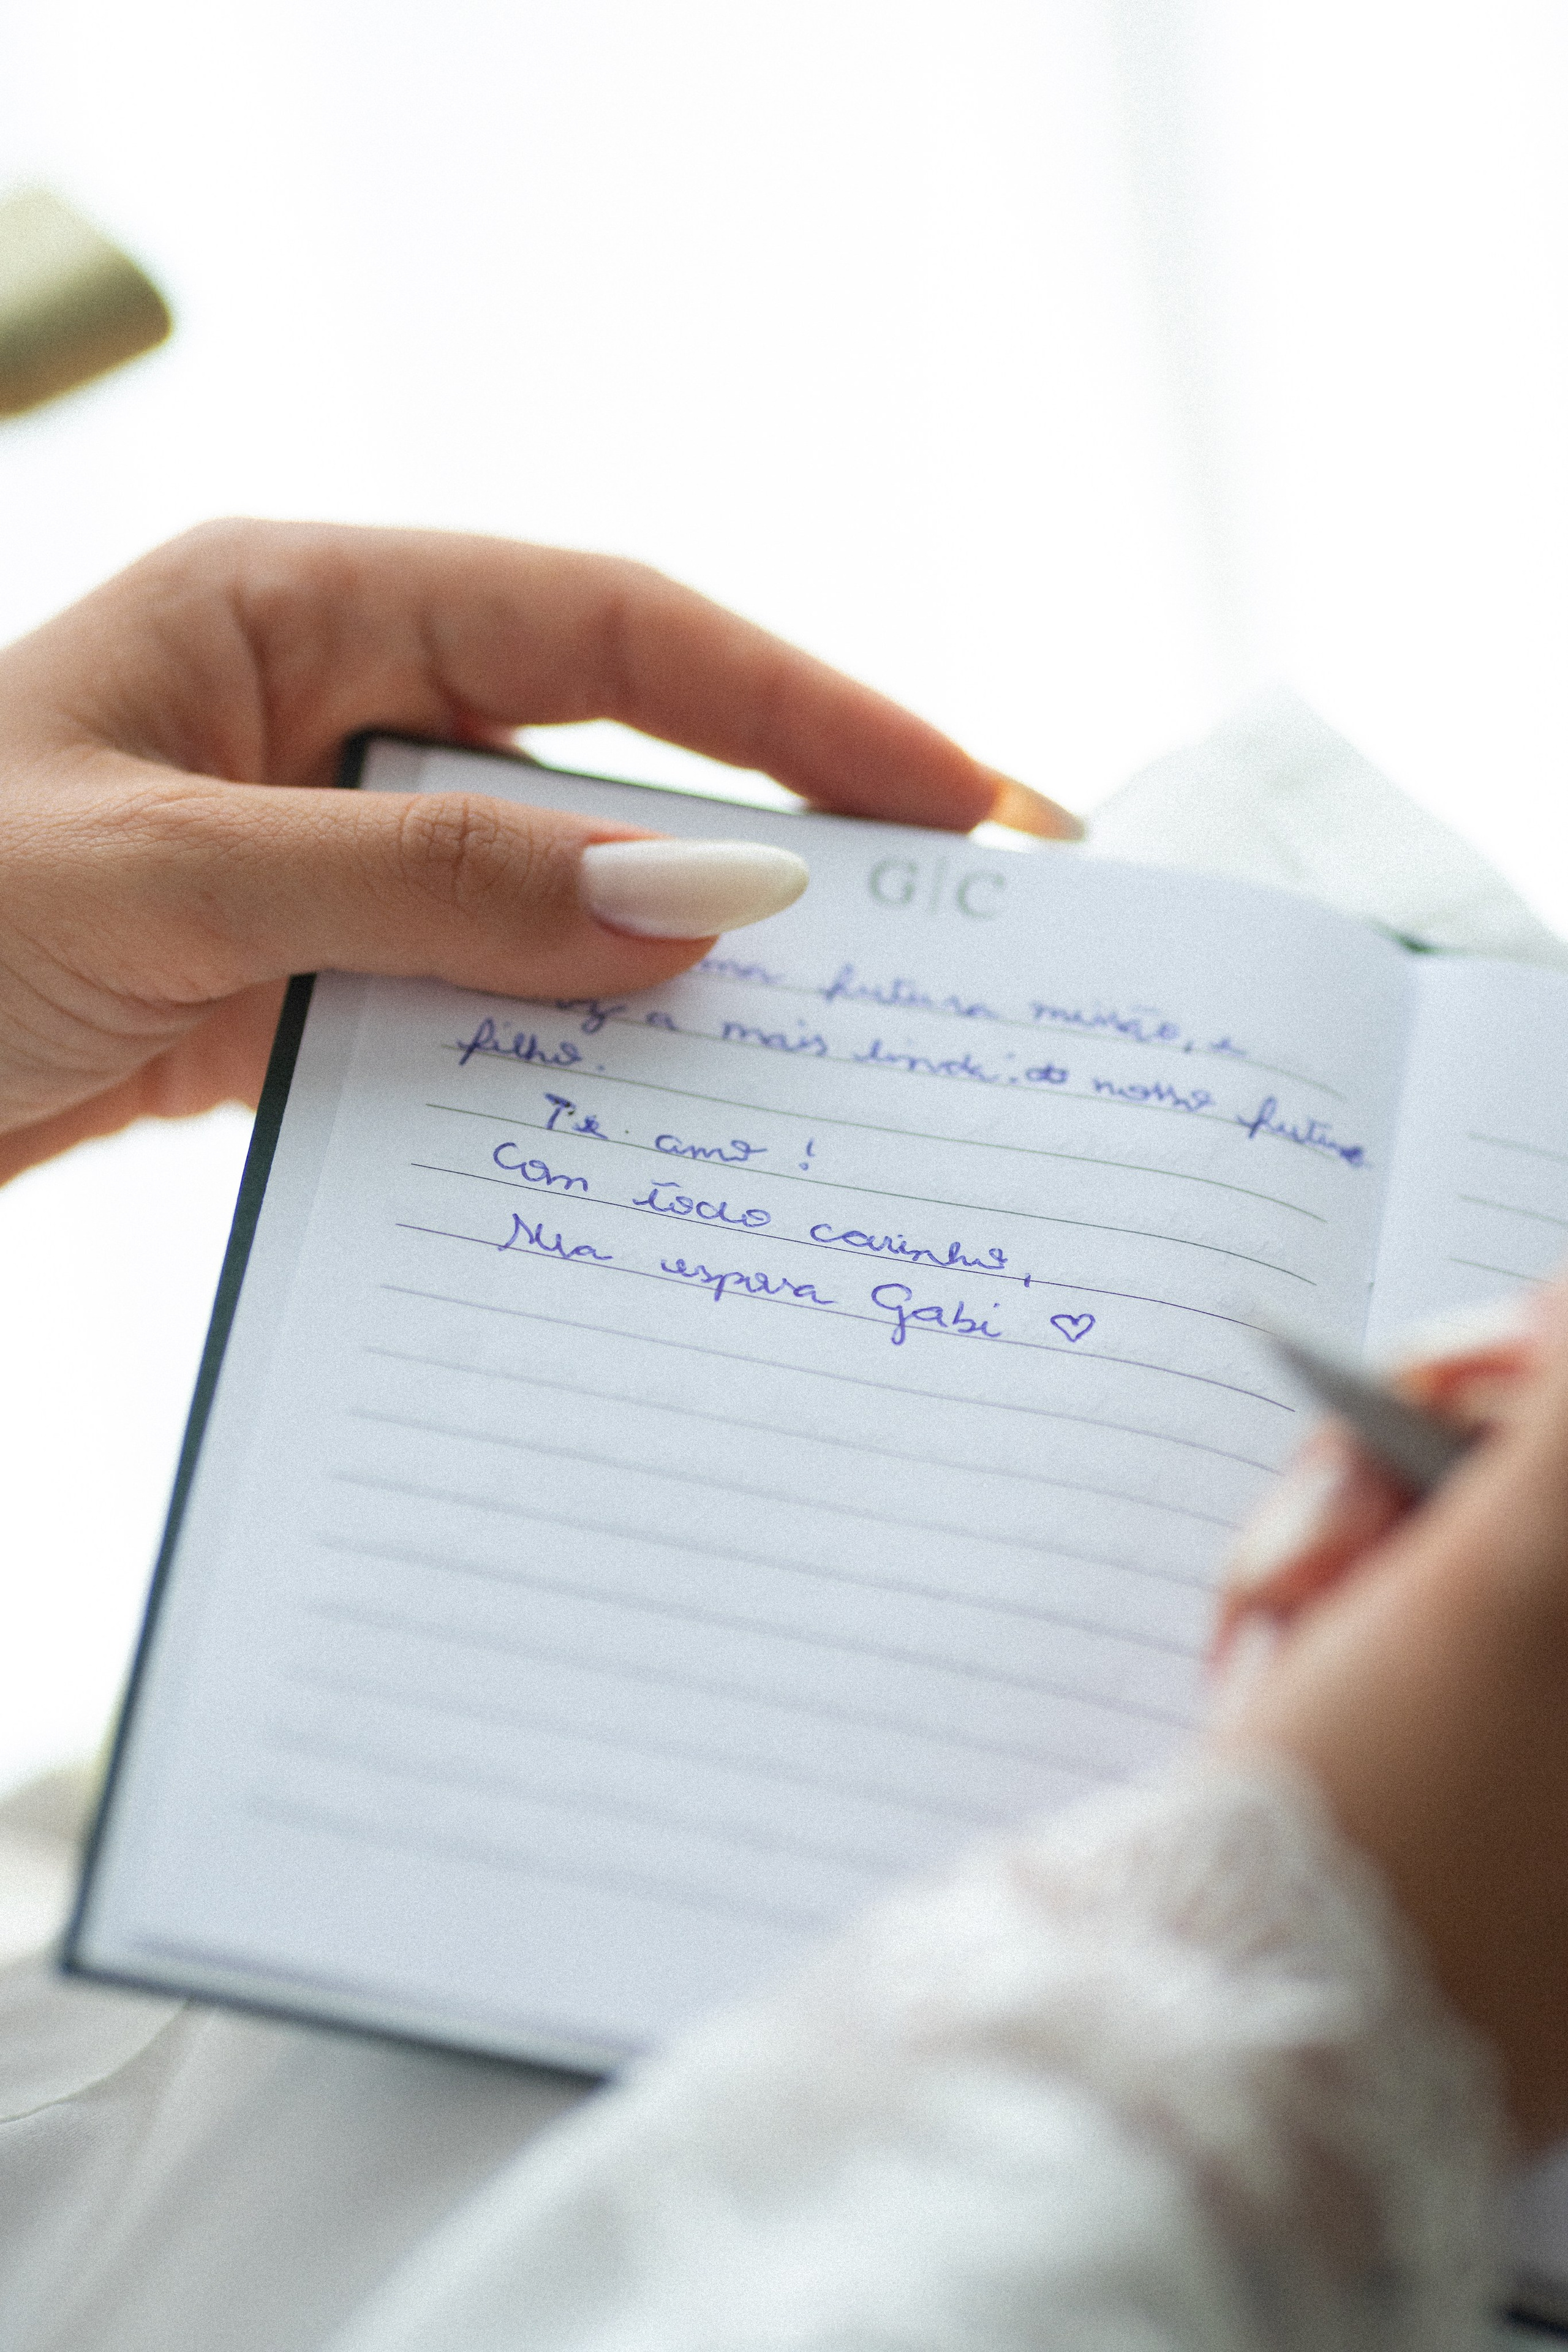 G|C
futura missão, e
a mais linda: do nosso futuro
filho.
Te amo!
Com todo carinho,
Sua esposa Gabi ♡